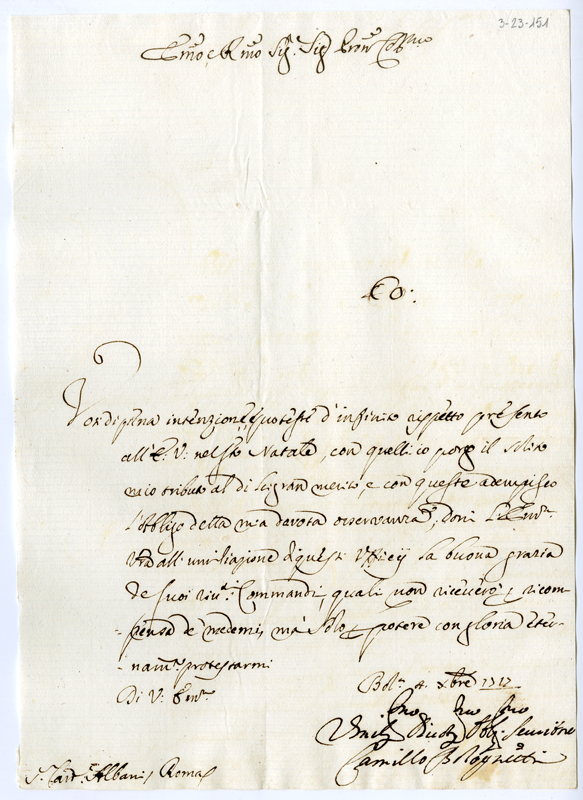 3-23-151
Emo e Rmo Sig.r Sig.r Pron Col.mo
Voti di piena intenzione, e proteste d'infinito rispetto presento
all'E. V. nel Sto Natale, con quelli io porgo il solito
mio tributo al di lei gran merito, e con queste adempisco
l'obbligo della mia devota osservanza, doni L'Em.
Vra all'umiliazione di questi Ufficij la buona grazia
de suoi riv.ti Commandi, quali non riceverò p ricom-
-pensa de medemi, mà solo p potere con gloria eter-
-nam.e protestarmi
Di V. Em.
Bol.a 4 Xbre 1717
Umil.mo Div.mo Obl.mo Servitore
Camillo Bolognetti
S. Card. Albani Roma